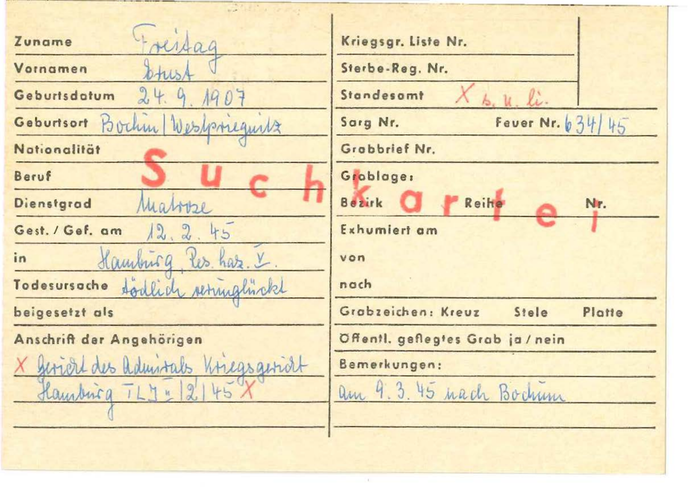 Zuname Freitag
Vornamen Ernst
Geburtsdatum 24.9.1907
Geburtsort Bochin/Westpriegnitz
Nationalität
Beruf
Dienstgrad Matrose
Gest./Gef. am 12.2.45
in Hamburg, Res. laz. V.
Todesursache tödlich verunglückt
beigesetzt als
Anschrift der Angehörigen
X Gericht des Admirals, Kriegsgericht
Hamburg II/2/45 X
Suchkartei
Kriegsgr. Liste Nr.
Sterbe-Reg. Nr.
Standesamt X s. u. li.
Sarg Nr. Feuer Nr. 634/45
Grabbrief Nr.
Grablage:
Bezirk Reihe Nr.
Exhumiert am
von
nach
Grabzeichen: Kreuz Stele Platte
Öffentl. gepflegtes Grab ja/nein
Bemerkungen:
am 9.3.45 nach Bochum